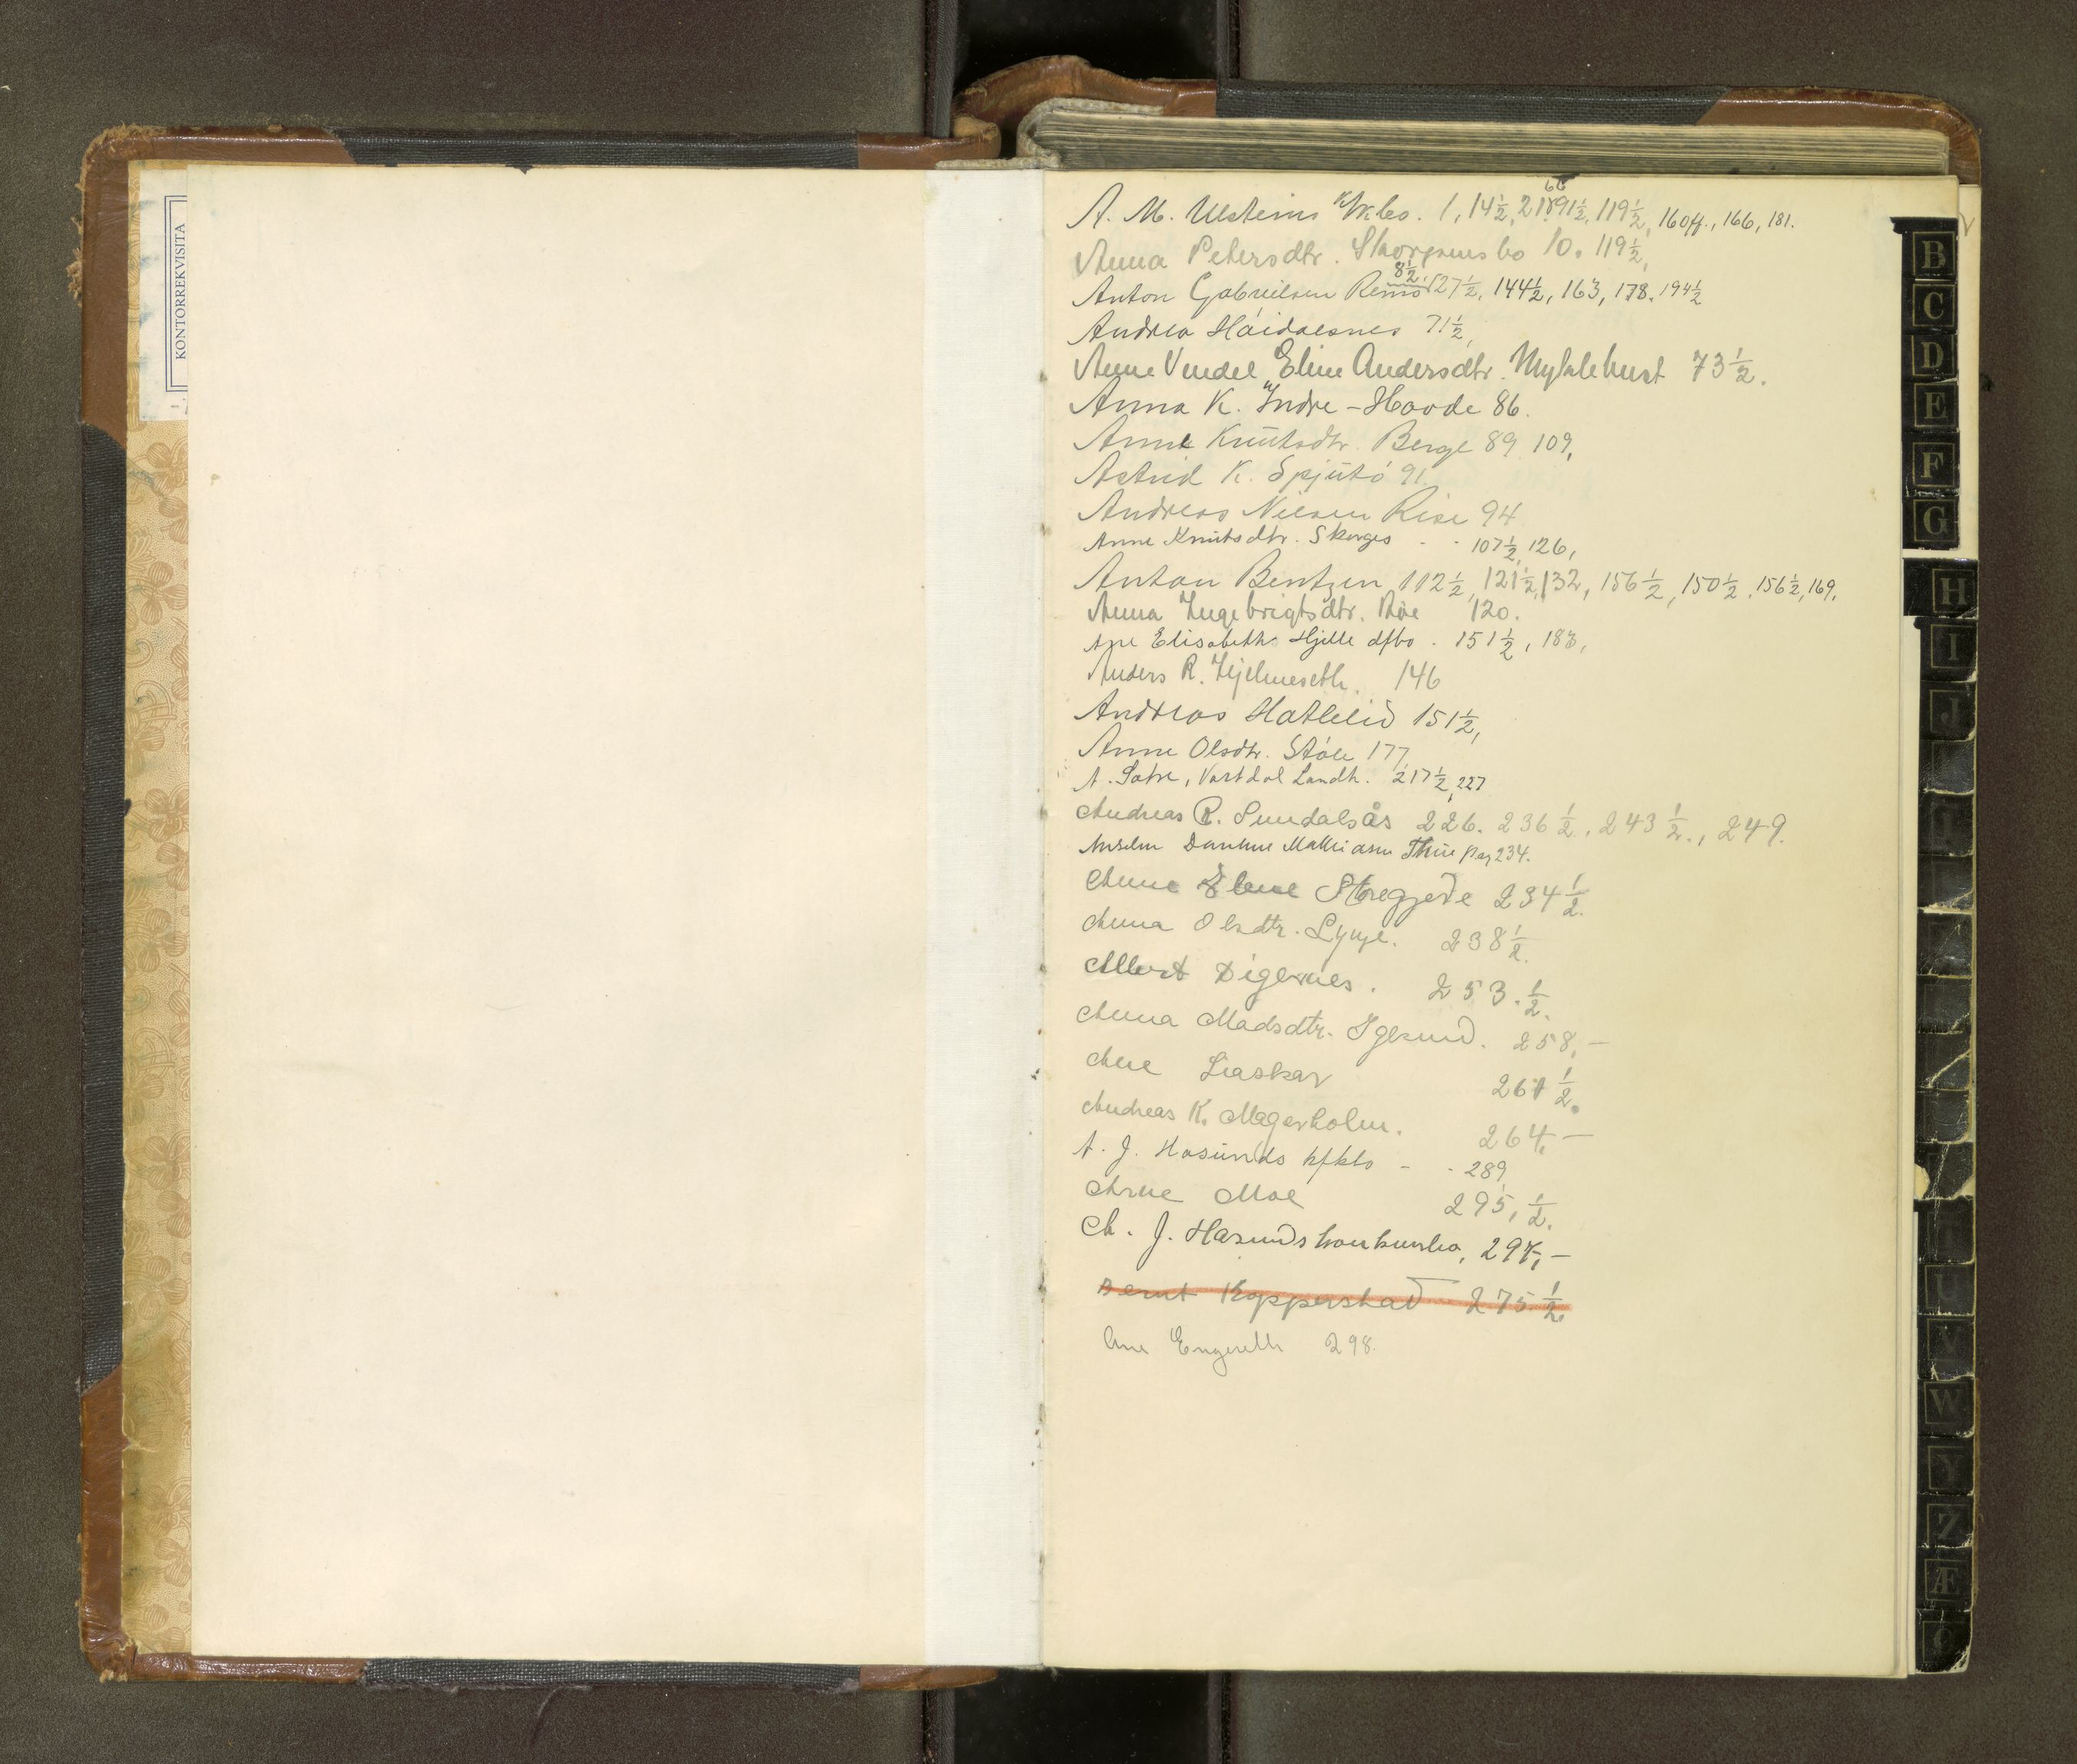 KONTORREKVISITA
A. M. Ulsteins k/k.bo. 1, 14½, 21, 66, 91½, 119½, 160ff., 166, 181.
Anna Petersdtr. Skorgensbo 10. 119½,
Anton Gabrielsen Remö 8½, 27½, 144½, 163, 178, 194½
Andrea Háidaesnes 71½,
Anne Vendel Eline Andersdtr. Myklebust 73½.
Anna K. Indre-Hovde 86.
Anne Knutsdtr. Berge 89 109,
Astrid K. Spjutö 91.
Andreas Nilsen Rise 94
Anne Knutsdtr. Skorges - - 107½, 126,
Anton Bentzen 112½, 121½, 132, 156½, 150½, 156½, 169.
Anna Ingebrigtsdtr. 120.
Elisabeths Hjelle dfbo. 151½, 183,
Anders R. Hjelmeseth. 146
Andreas Hatlelid 151½,
Anne Olsdtr. Stöle 177,
A. Satre, Vartdal Landh. 217½, 227
Andreas R. Sundalsås 226. 236½, 243½., 249.
Anselm Mathiasen Thue pag 234.
Anne Elene Streggede 234½.
Anna Olsdtr. Lynge. 238½.
Albert Digernes. 253.½.
Anna Madsdtr. Igesund. 258,-
Ane Liaskar 261½.
Andreas K. Magerholm. 264,-
A. J. Hasunds kfkbo - - 289,
Arne Moe 295,½.
A. J. Hasunds konkursbo, 297,-
Bernt Kopperstad 275.½
Ane Engeseth 298.
B
C
D
E
F
G
H
I
J
L
U
V
W
Y
Z
Æ
Ø